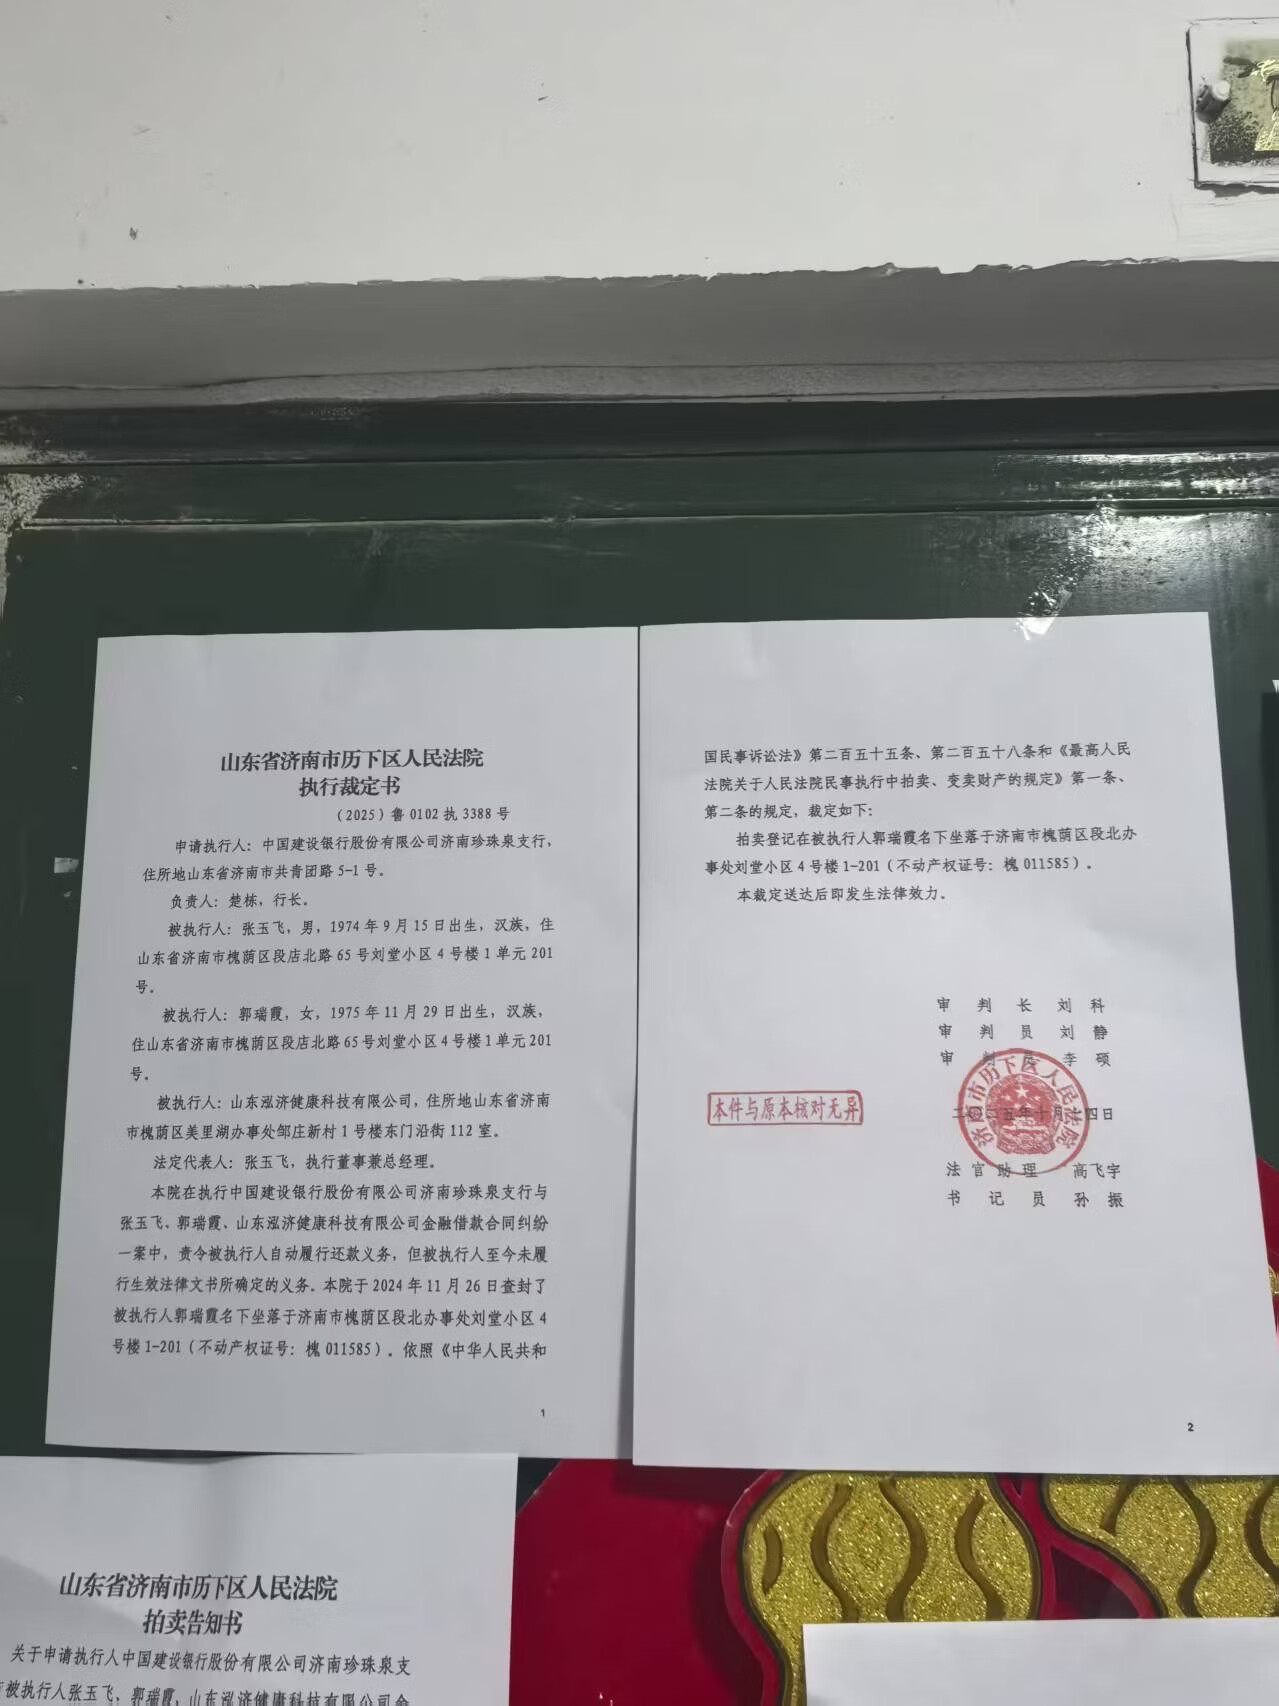 山东省济南市历下区人民法院
执行裁定书
（2025）鲁 0102 执 3388 号
申请执行人：中国建设银行股份有限公司济南珍珠泉支行，
住所地山东省济南市共青团路 5-1 号。
负责人：楚栋，行长。
被执行人：张玉飞，男，1974 年 9 月 15 日出生，汉族，住
山东省济南市槐荫区段店北路 65 号刘堂小区 4 号楼 1 单元 201
号。
被执行人：郭瑞霞，女，1975 年 11 月 29 日出生，汉族，
住山东省济南市槐荫区段店北路 65 号刘堂小区 4 号楼 1 单元 201
号。
被执行人：山东泓济健康科技有限公司，住所地山东省济南
市槐荫区美里湖办事处邹庄新村 1 号楼东门沿街 112 室。
法定代表人：张玉飞，执行董事兼总经理。
本院在执行中国建设银行股份有限公司济南珍珠泉支行与
张玉飞、郭瑞霞、山东泓济健康科技有限公司金融借款合同纠纷
一案中，责令被执行人自动履行还款义务，但被执行人至今未履
行生效法律文书所确定的义务。本院于 2024 年 11 月 26 日查封了
被执行人郭瑞霞名下坐落于济南市槐荫区段北办事处刘堂小区 4
号楼 1-201（不动产权证号：槐 011585）。依照《中华人民共和
1
国民事诉讼法》第二百五十五条、第二百五十八条和《最高人民
法院关于人民法院民事执行中拍卖、变卖财产的规定》第一条、
第二条的规定，裁定如下：
拍卖登记在被执行人郭瑞霞名下坐落于济南市槐荫区段北办
事处刘堂小区 4 号楼 1-201（不动产权证号：槐 011585）。
本裁定送达后即发生法律效力。
审 判 长 刘 科
审 判 员 刘 静
审 判 员 李 硕
济南市历下区人民法院
本件与原本核对无异
二〇二五年十月 四日
法 官 助 理 高飞宇
书 记 员 孙 振
2
山东省济南市历下区人民法院
拍卖告知书
关于申请执行人中国建设银行股份有限公司济南珍珠泉支
被执行人张玉飞、郭瑞霞、山东泓济健康科技有限公司金